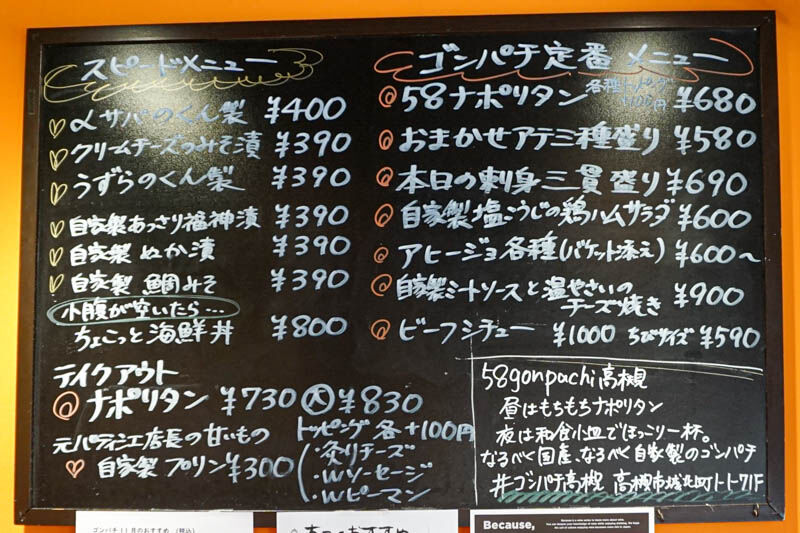 スピードメニュー
〆サバのくん製 ¥400
クリームチーズのみそ漬 ¥390
うずらのくん製 ¥390
自家製あっさり福神漬 ¥390
自家製 ぬか漬 ¥390
自家製 鯛みそ ¥390
小腹が空いたら…
ちょこっと海鮮丼 ¥800
テイクアウト
ナポリタン ¥730 大 ¥830
元パティシエ店長の甘いもの
自家製 プリン ¥300
トッピング 各+100円
・炙りチーズ
・Wソーセージ
・Wピーマン
ゴンパチ定番メニュー
58ナポリタン 各種トッピング +100円 ¥680
おまかせアテ三種盛り ¥580
本日の刺身三貫盛り ¥690
自家製塩こうじの鶏ハムサラダ ¥600
アヒージョ各種(バケット添え) ¥600〜
自家製ミートソースと温やさいの
チーズ焼き ¥900
ビーフシチュー ¥1000 ちびサイズ ¥590
58gonpachi高槻
昼はもちもちナポリタン
夜は和食小皿でほっこり一杯。
なるべく国産、なるべく自家製のゴンパチ
#ゴンパチ高槻 高槻市城北町1-1-7 1F
ゴンパチ11月のおすすめ (税込)
Because,